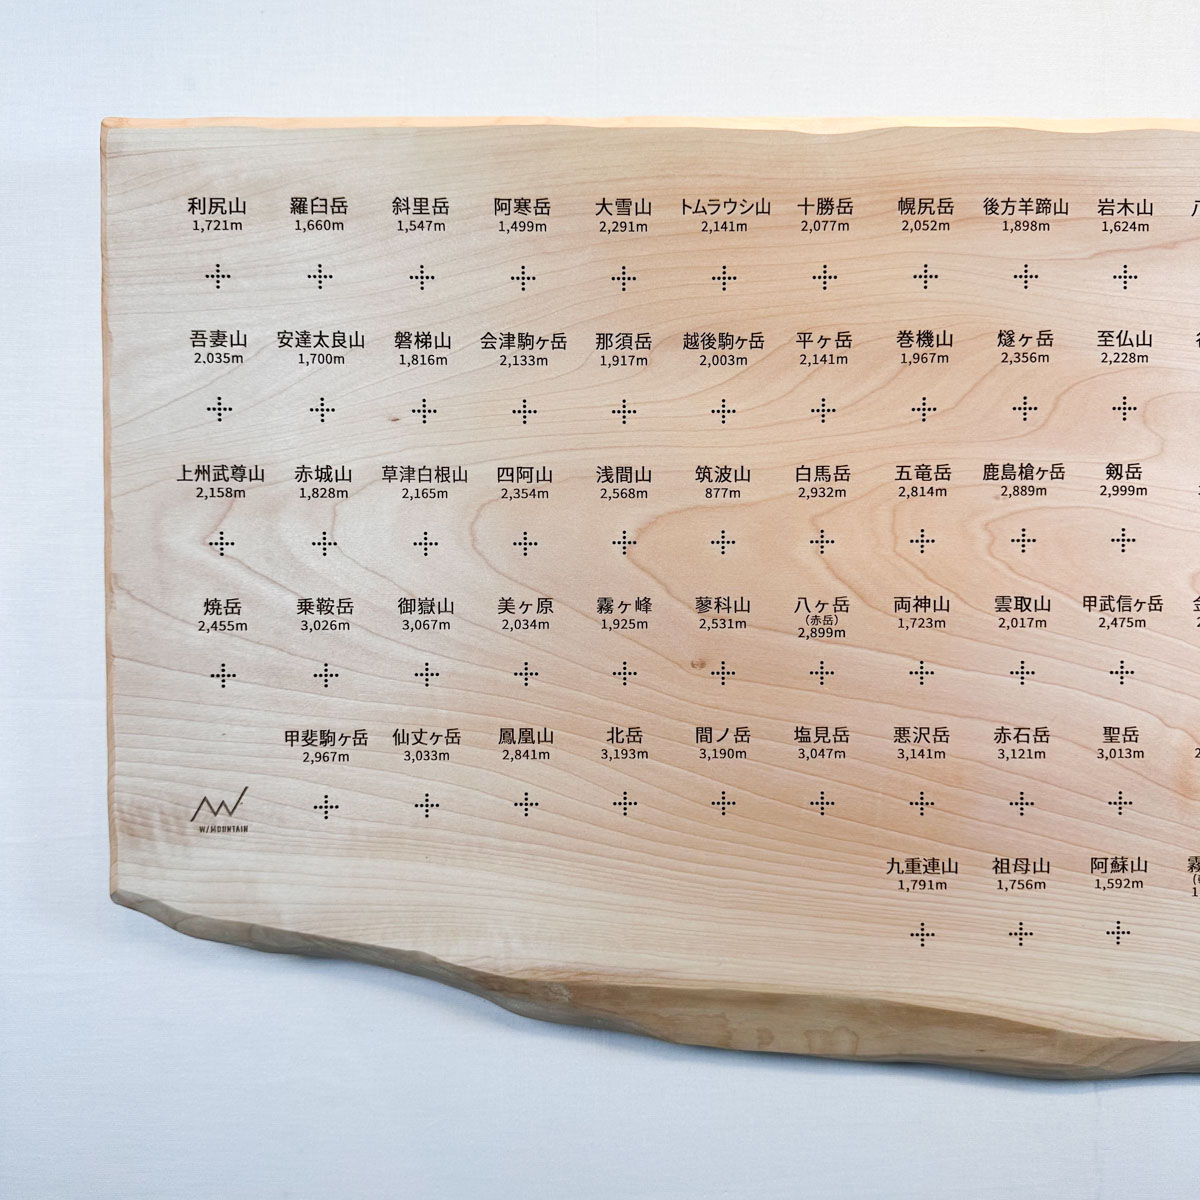 利尻山 羅臼岳 斜里岳 阿寒岳 大雪山 トムラウシ山 十勝岳 幌尻岳 後方羊蹄山 岩木山
1,721m 1,660m 1,547m 1,499m 2,291m 2,141m 2,077m 2,052m 1,898m 1,624m
吾妻山 安達太良山 磐梯山 会津駒ヶ岳 那須岳 越後駒ヶ岳 平ヶ岳 巻機山 燧ヶ岳 至仏山
2,035m 1,700m 1,816m 2,133m 1,917m 2,003m 2,141m 1,967m 2,356m 2,228m
上州武尊山 赤城山 草津白根山 四阿山 浅間山 筑波山 白馬岳 五竜岳 鹿島槍ヶ岳 剱岳
2,158m 1,828m 2,165m 2,354m 2,568m 877m 2,932m 2,814m 2,889m 2,999m
焼岳 乗鞍岳 御嶽山 美ヶ原 霧ヶ峰 蓼科山 八ヶ岳 両神山 雲取山 甲武信ヶ岳
(赤岳)
2,455m 3,026m 3,067m 2,034m 1,925m 2,531m 2,899m 1,723m 2,017m 2,475m
甲斐駒ヶ岳 仙丈ヶ岳 鳳凰山 北岳 間ノ岳 塩見岳 悪沢岳 赤石岳 聖岳
2,967m 3,033m 2,841m 3,193m 3,190m 3,047m 3,141m 3,121m 3,013m
W/MOUNTAIN
九重連山 祖母山 阿蘇山
1,791m 1,756m 1,592m